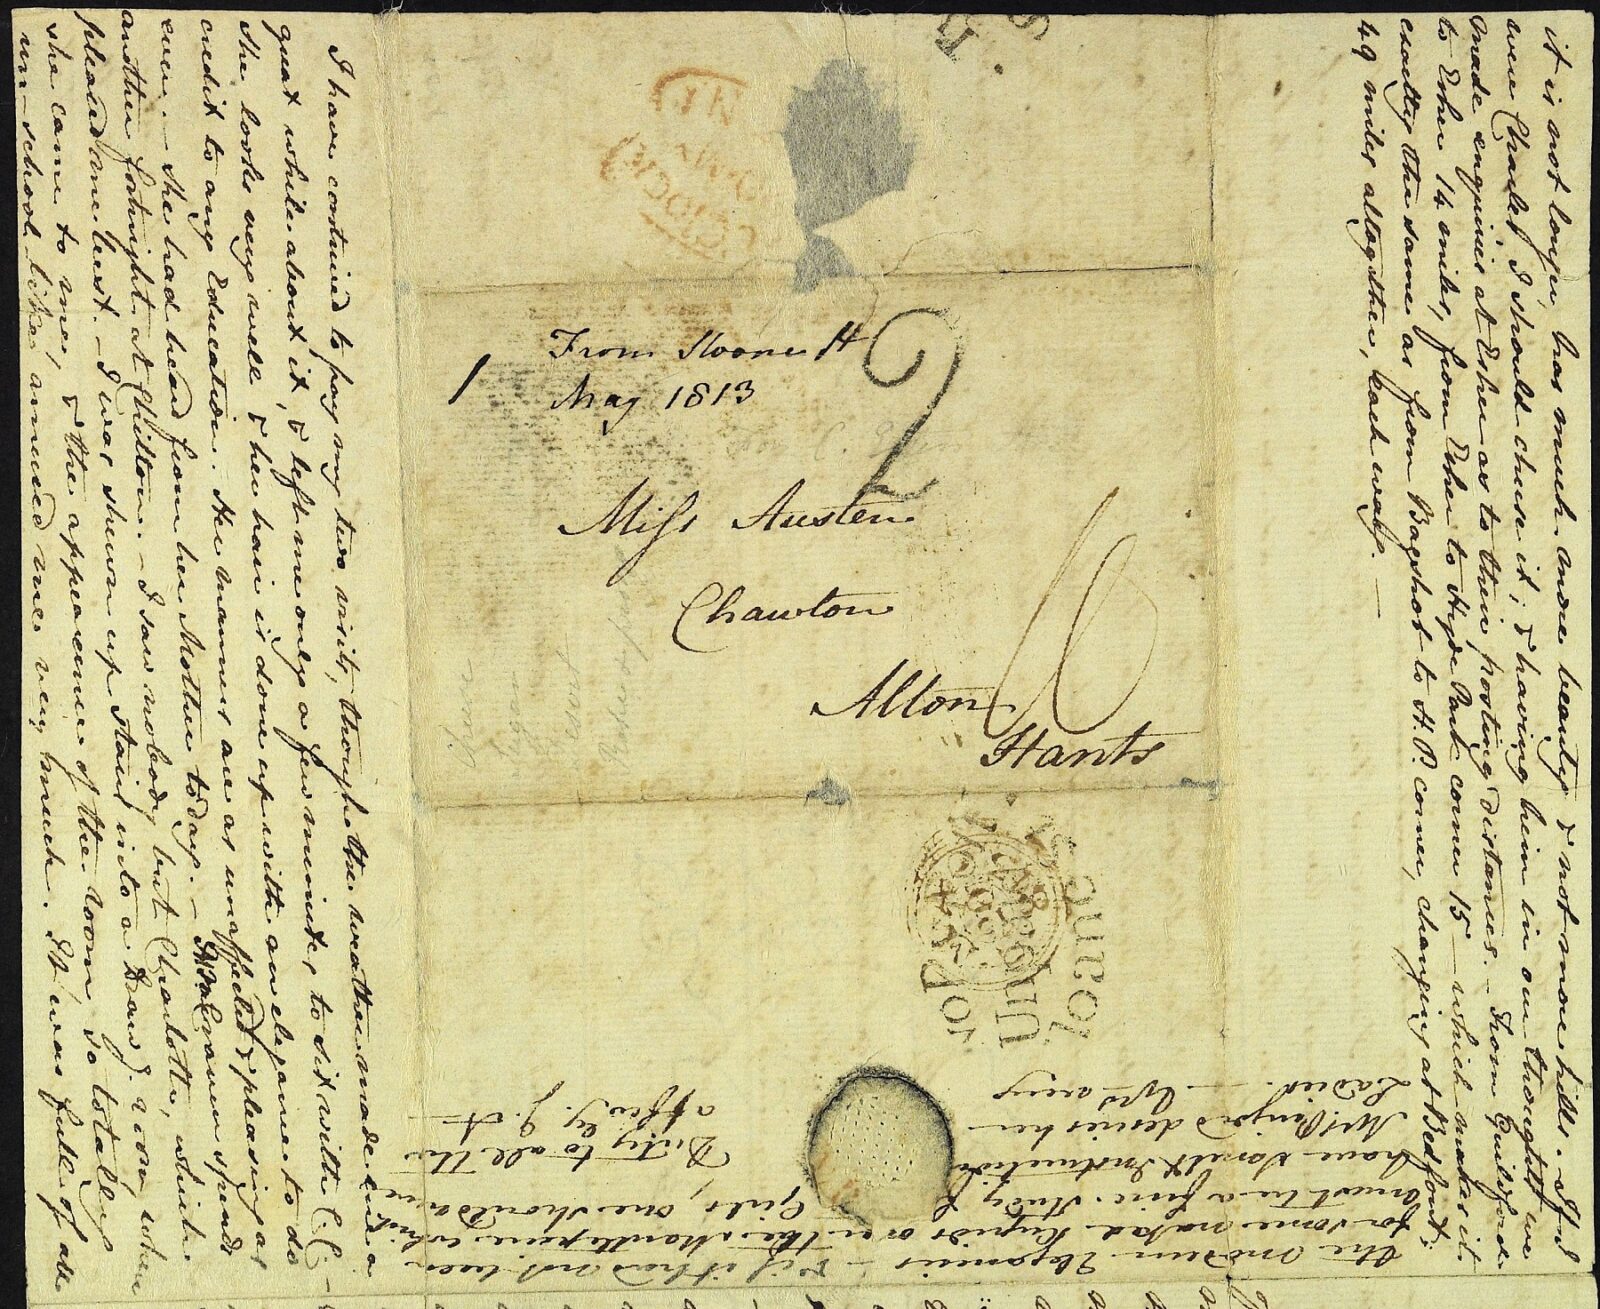 From Sloane St
May 1813
1
2
Miss Austen
Chawton
Alton
Hants
6
I have contrived to pay my two visits, though the weather made me a
great while about it, & left me only a few minutes to sit with C. C. –
She looks very well & her hair is done up with an elegance to do
credit to any Education. Her manners are as unaffected & pleasing as
ever. – She had heard from her Mother today. – Mrs Craven spends
another fortnight at Chilton. – I saw nobody but Charlotte, which
pleased me best. – I was shewn up stairs into a Drawg. room, where
she came to me, & the appearance of the room, so totally
un-school-like, amused me very much. It was full of all
the modern Elegancies – & if it had not been
for some naked Cupids over the Mantlepeice, which
must be a fine study for Girls, one should never
have Smelt Instruction.
Mrs. Perigord desires her Duty to all the
Ladies. – Yrs. very affecly. J. A.–
it is not longer, has much more beauty, & not more hills. – If I
were Charles, I should chuse it; & having him in our thoughts we
made enquiries at Esher as to their posting distances. – From Guildford
to Esher 14 miles, from Esher to Hyde Park corner 15 – which makes it
exactly the same as from Bagshot to H. P. corner, changing at Bedfont;
49 miles altogether, each way. –